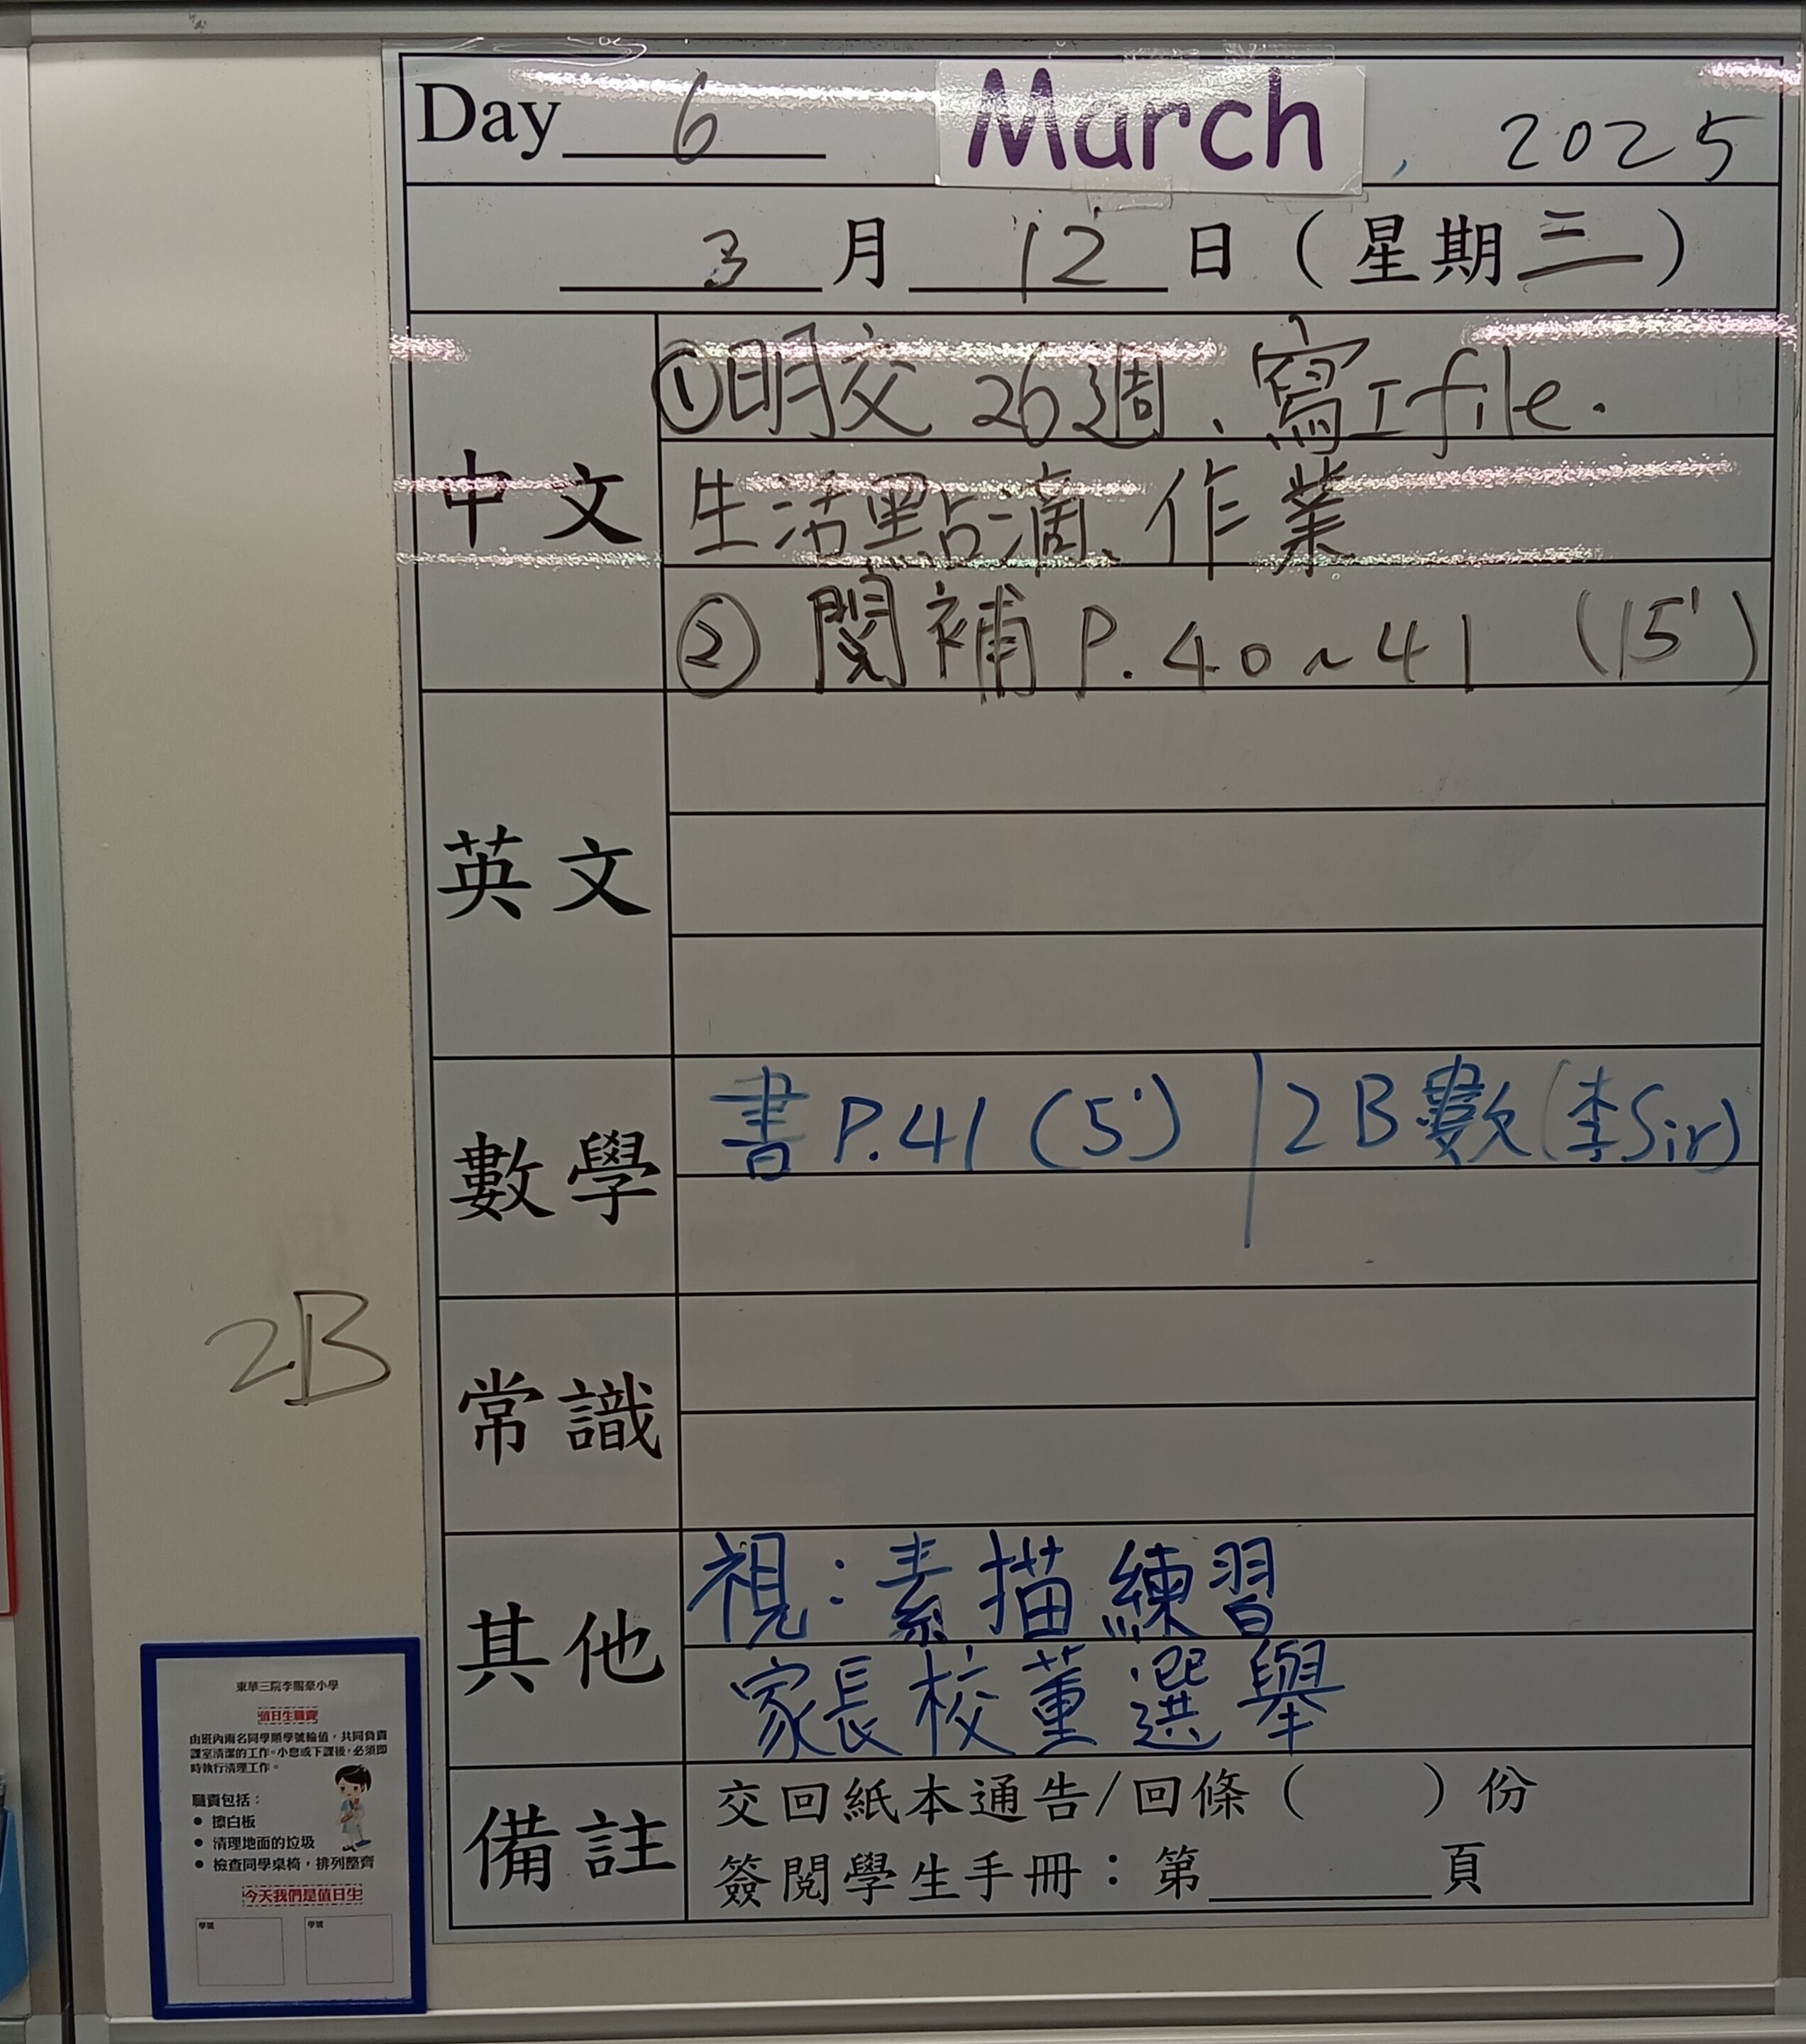 Day 6 March, 2025
3月12日（星期三）
中文
①明交26週、寫I file.
生活點滴、作業
② 閱補 P.40~41 (15')
英文
數學
書 P.41 (5') | 2B數(李Sir)
常識
2B
其他
視：素描練習
家長校董選舉
備註
交回紙本通告/回條（ ）份
簽閱學生手冊：第______頁
東華三院李賜豪小學
值日生職責
由班內兩名同學順學號輪值，共同負責
課室清潔的工作。小息或下課後，必須即
時執行清理工作。
職責包括：
● 擦白板
● 清理地面的垃圾
● 檢查同學桌椅，排列整齊
今天我們是值日生
學號 學號